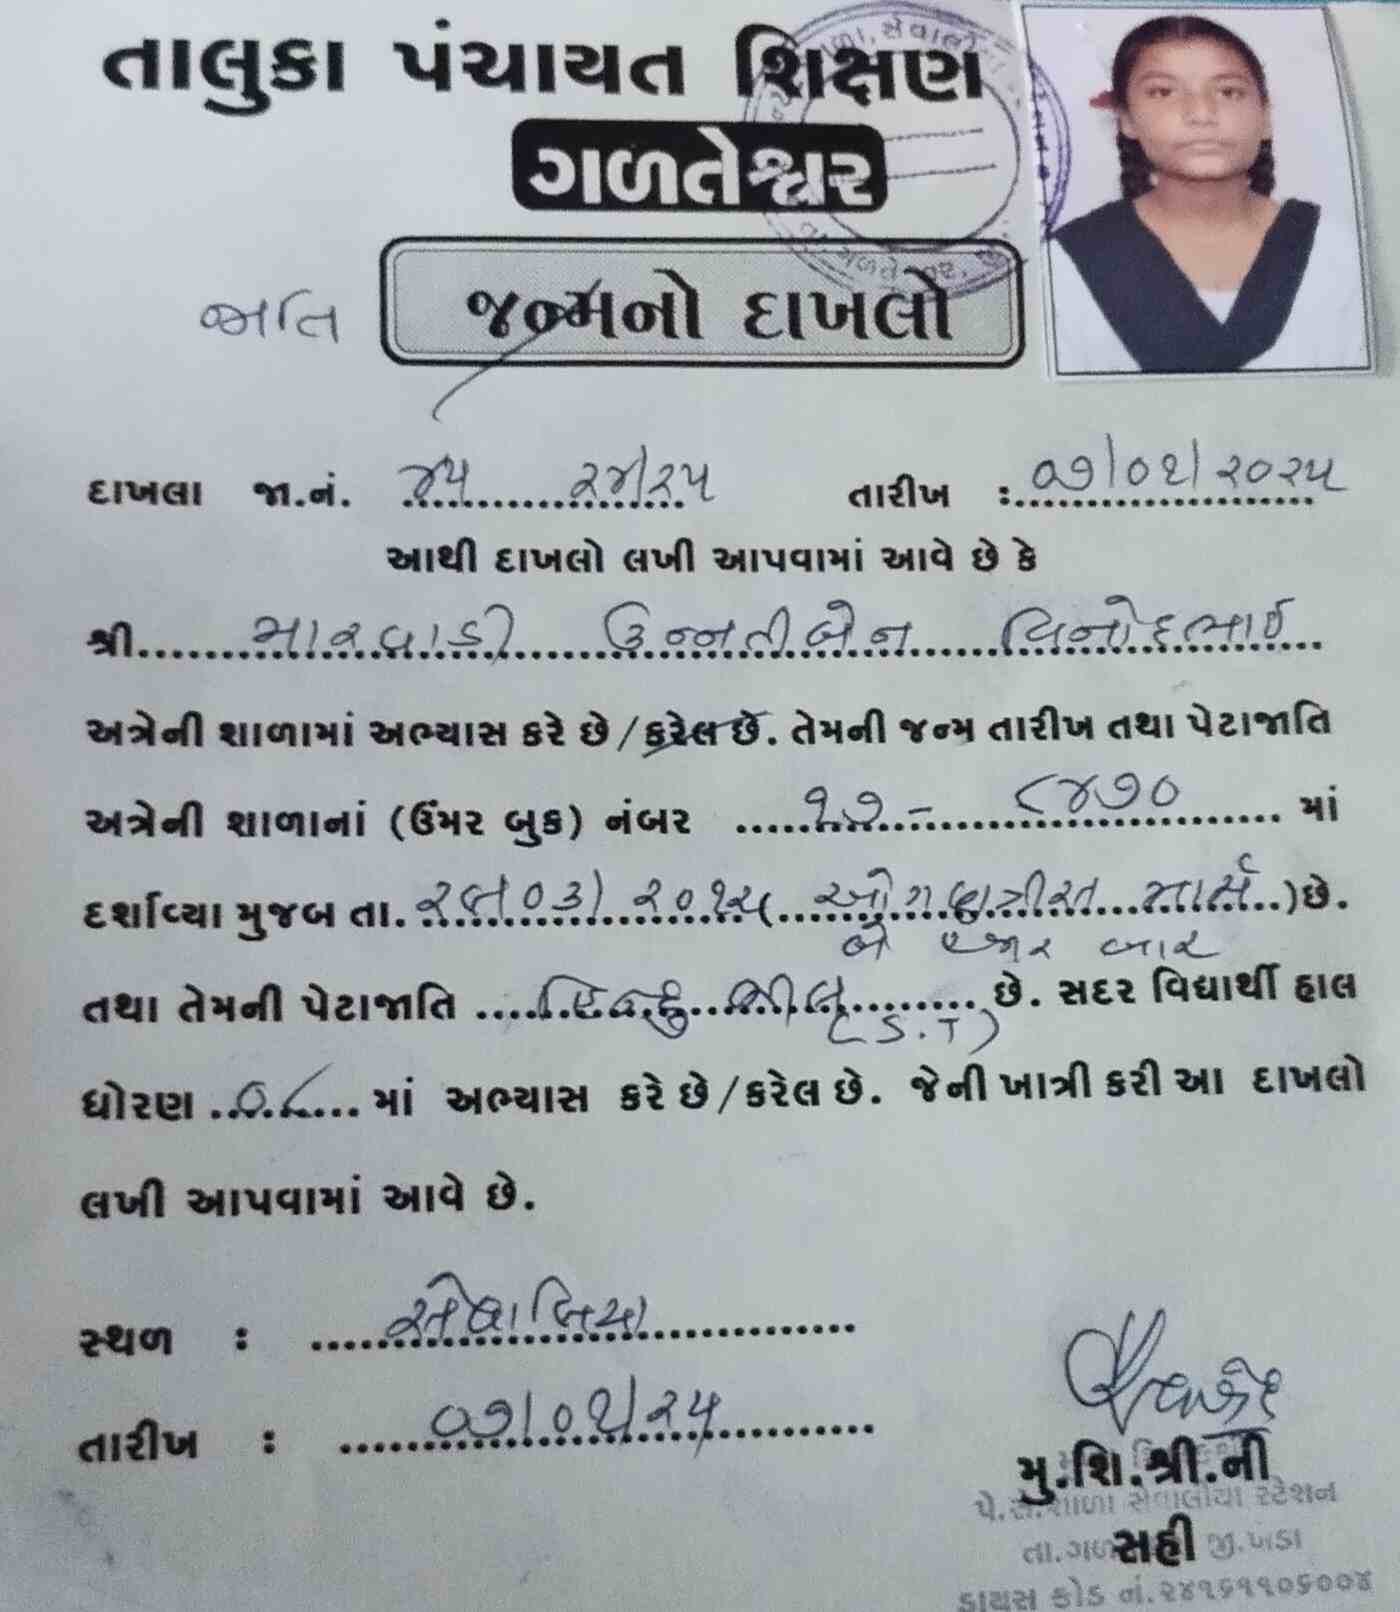 તાલુકા પંચાયત શિક્ષણ
ગળતેશ્વર
જાતિ જન્મનો દાખલો
દાખલા જા.નં. ૪૫ ૨૪/૨૫ તારીખ : ૦૭/૦૧/૨૦૨૫
આથી દાખલો લખી આપવામાં આવે છે કે
શ્રી મારવાડી ઉન્નતીબેન વિનોદભાઈ
અત્રેની શાળામાં અભ્યાસ કરે છે/કરેલ છે. તેમની જન્મ તારીખ તથા પેટાજાતિ
અત્રેની શાળાનાં (ઉંમર બુક) નંબર ૧૭ - ૮૪૭૦ માં
દર્શાવ્યા મુજબ તા. ૨૯/૦૩/૨૦૧૨ (ઓગણત્રીસ માર્ચ) છે.
બે હજાર બાર
તથા તેમની પેટાજાતિ હિન્દુ ભીલ છે. સદર વિદ્યાર્થી હાલ
(S.T)
ધોરણ ૦૮ માં અભ્યાસ કરે છે/કરેલ છે. જેની ખાત્રી કરી આ દાખલો
લખી આપવામાં આવે છે.
સ્થળ : સેવાલિયા
તારીખ : ૦૭/૦૧/૨૫
મુ.શિ.શ્રી.ની
પે.સે.શાળા સેવાલીયા સ્ટેશન
સહી
તા.ગળ જી.ખેડા
ડાયસ કોડ નં.૨૪૧૬૧૧૦૬૦૦૪